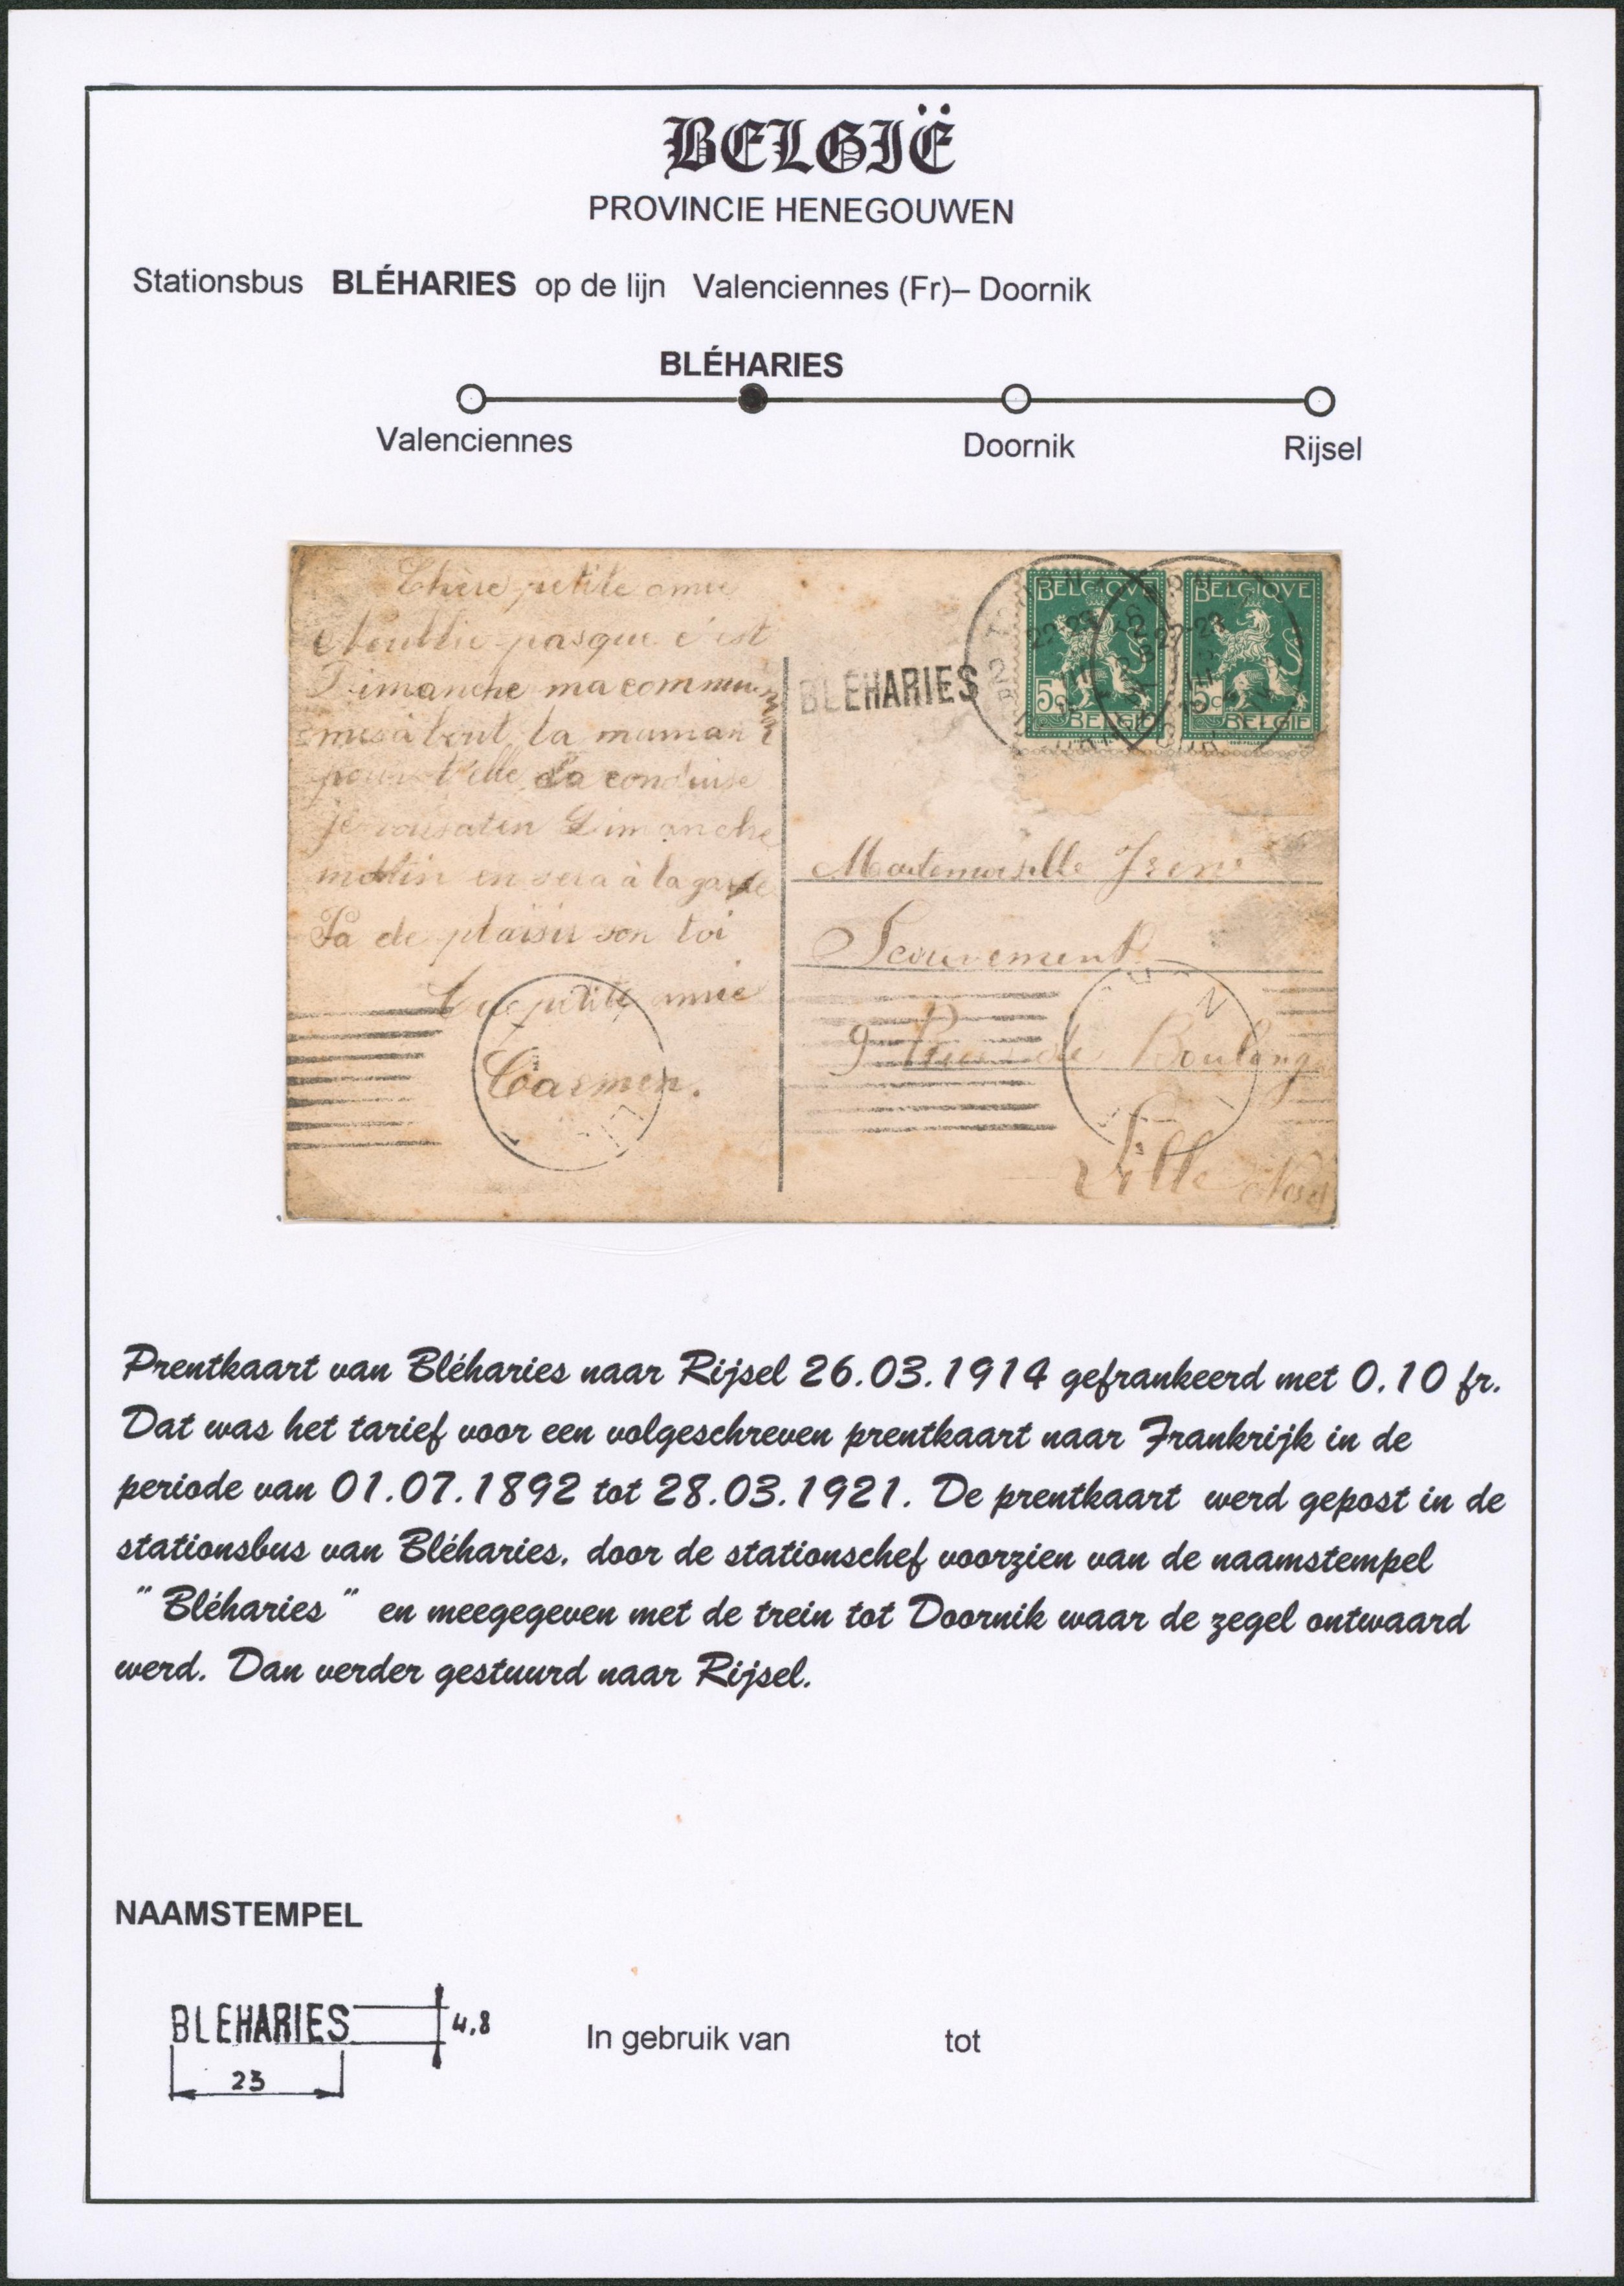 BELGIË
PROVINCIE HENEGOUWEN
Stationsbus BLÉHARIES op de lijn Valenciennes (Fr)– Doornik
BLÉHARIES
Valenciennes Doornik Rijsel
Chère petite amie
N'oublie pas que c'est
Dimanche ma commun
la maman
pour la conduise
Dimanche
matin en sera à la gare
Pa de plaisir son toi
petite amie
Carmen.
BLEHARIES
BELGIQVE
5c
BELGIE
22-23
BELGIQVE
5c
BELGIE
22-23
Mademoiselle
9 Rue de Boulong
Lille
Prentkaart van Bléharies naar Rijsel 26.03.1914 gefrankeerd met 0.10 fr.
Dat was het tarief voor een volgeschreven prentkaart naar Frankrijk in de
periode van 01.07.1892 tot 28.03.1921. De prentkaart werd gepost in de
stationsbus van Bléharies, door de stationschef voorzien van de naamstempel
" Bléharies " en meegegeven met de trein tot Doornik waar de zegel ontwaard
werd. Dan verder gestuurd naar Rijsel.
NAAMSTEMPEL
BLEHARIES 4,8
23
In gebruik van tot